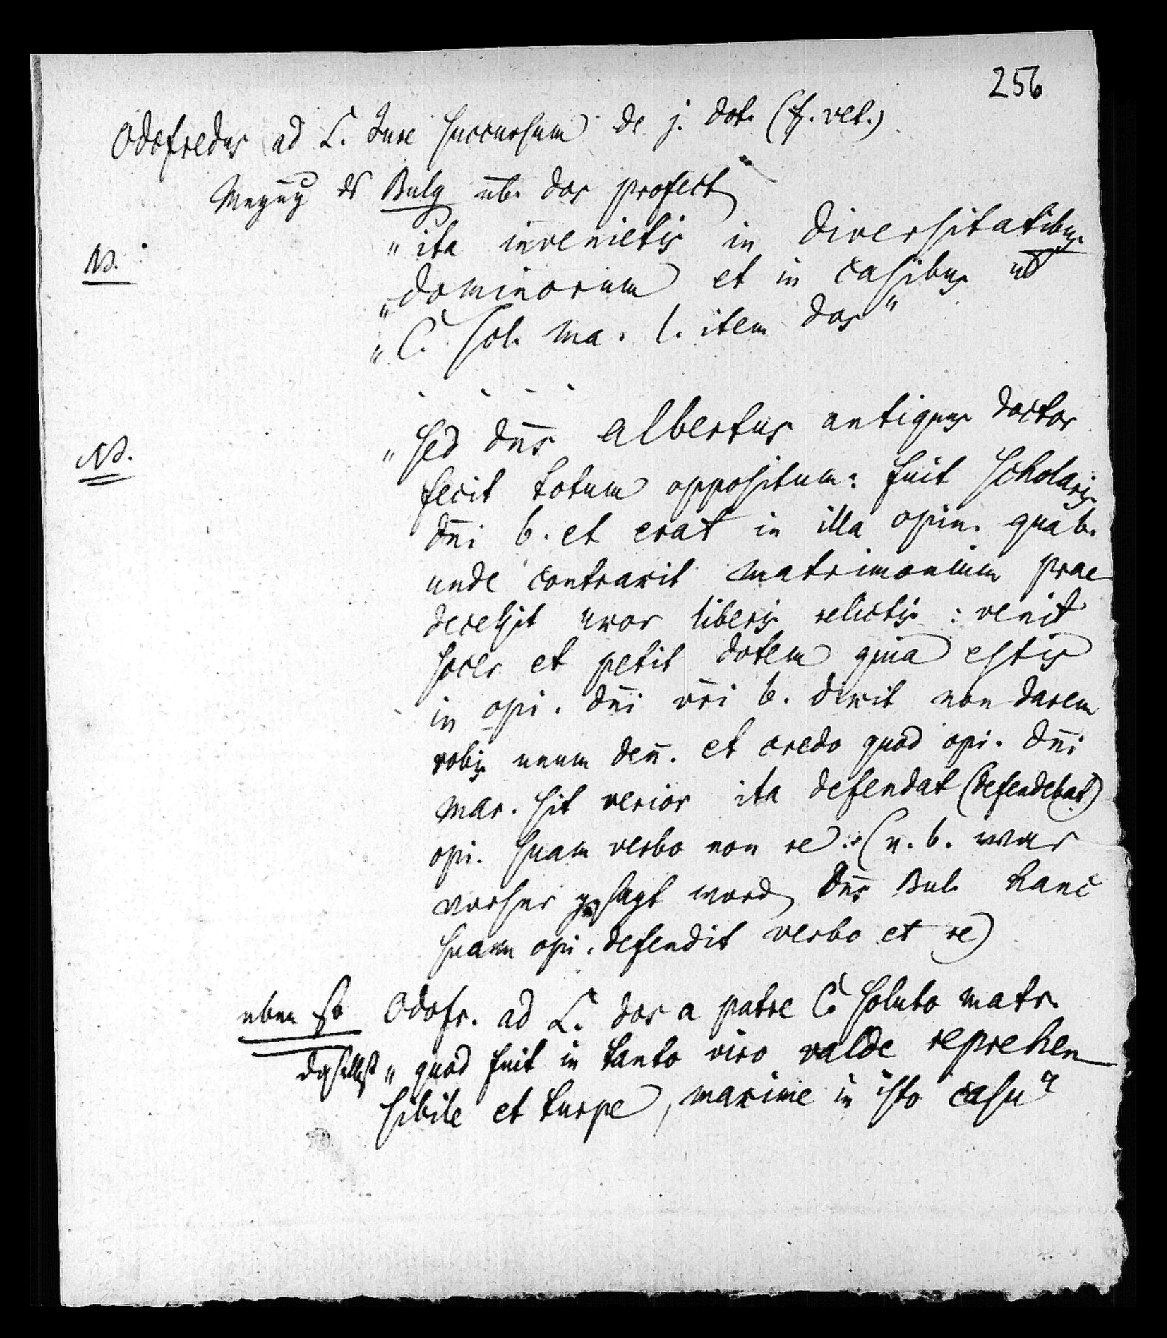 256
Odofredus ad L. Jure succursum de j. dot. (ff. vet.)
Meynung des Bulg. üb. dos profect.
NB. "ita invenietis in diversitatibus
"dominorum et in casibus ut
"C. sol. ma. l. item dos"
NB. "sed dn̄s albertus antiquus doctor
fecit totum oppositum: fuit scholaris
dn̄i b. et erat in illa opin. qua b.
unde contraxit matrimonium prae
decessit uxor liberis relictis: venit
socer et petit dotem quia estis
in opi. dn̄i vr̄i b. dixit non darem
vobis unum den̄. et credo quod opi. dn̄i
mar. sit verior ita defendat (defendebat?)
opi. suam verbo non re. (v. b. war
vorher gesagt word dn̄s Bul. hanc
suam opi. defendit verbo et re)
eben so Odofr. ad L. dos a patre C. soluto matr.
daselbst "quod fuit in tanto viro valde reprehen
sibile et turpe, maxime in isto casu"